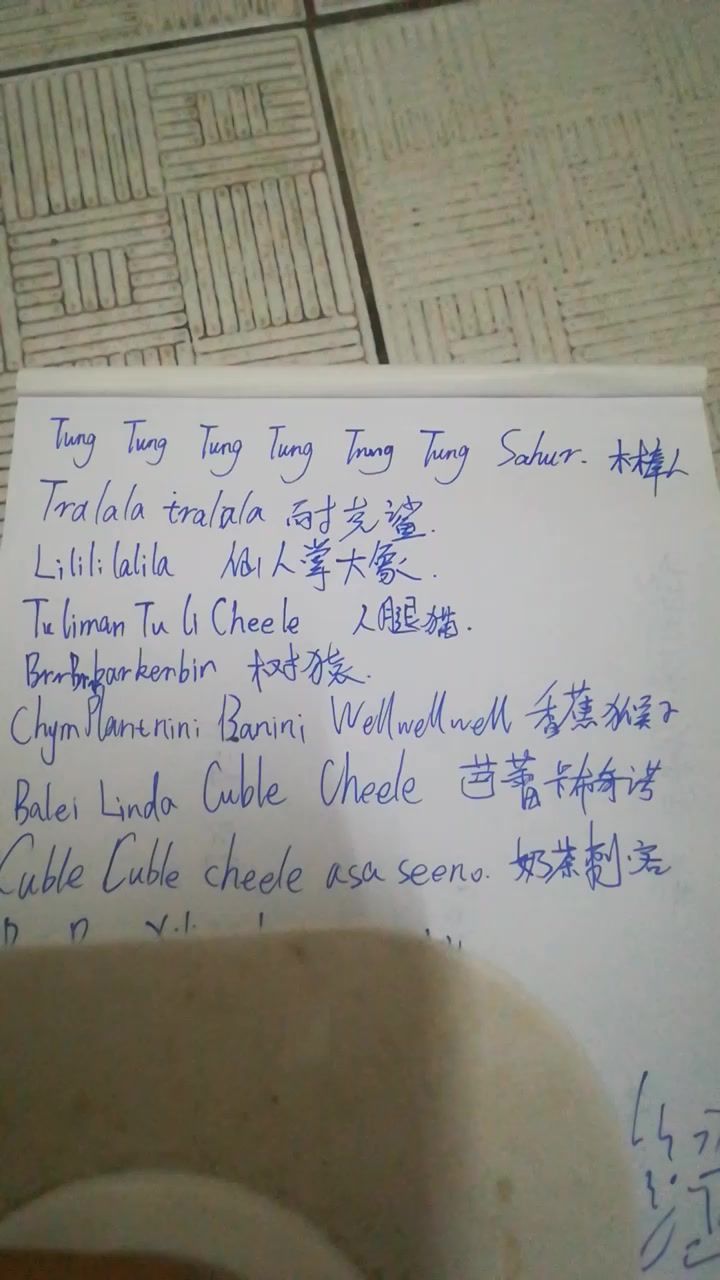 Tung Tung Tung Tung Tung Tung Sahur. 木棒人
Tralala tralala 耐克鲨.
Lilililalila 仙人掌大象.
Tuliman Tu li Cheele 人腿猫.
BrrBrrbarkenbin 树猿.
ChymPlantnini Banini Wellwellwell 香蕉猴子
Balei Linda Cuble Cheele 芭蕾卡布奇诺
Cuble Cuble cheele asa seeno. 奶茶刺客